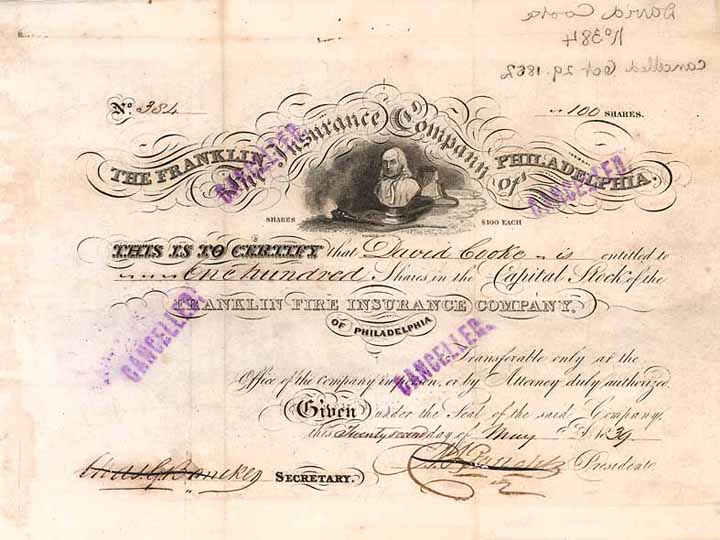 David Cooke
No 384
Cancelled Oct 29. 1852
No. 384
100 SHARES.
THE FRANKLIN Fire Insurance Company Of PHILADELPHIA.
CANCELLED
CANCELLED
SHARES $100 EACH
THIS IS TO CERTIFY that David Cooke is entitled to
One hundred Shares in the Capital Stock of the
FRANKLIN FIRE INSURANCE COMPANY,
OF PHILADELPHIA
CANCELLED
CANCELLED
Transferable only at the
Office of the Company in person, or by Attorney duly authorized.
Given under the Seal of the said Company,
this Twenty second day of May A.D. 1839
SECRETARY.
Presidente